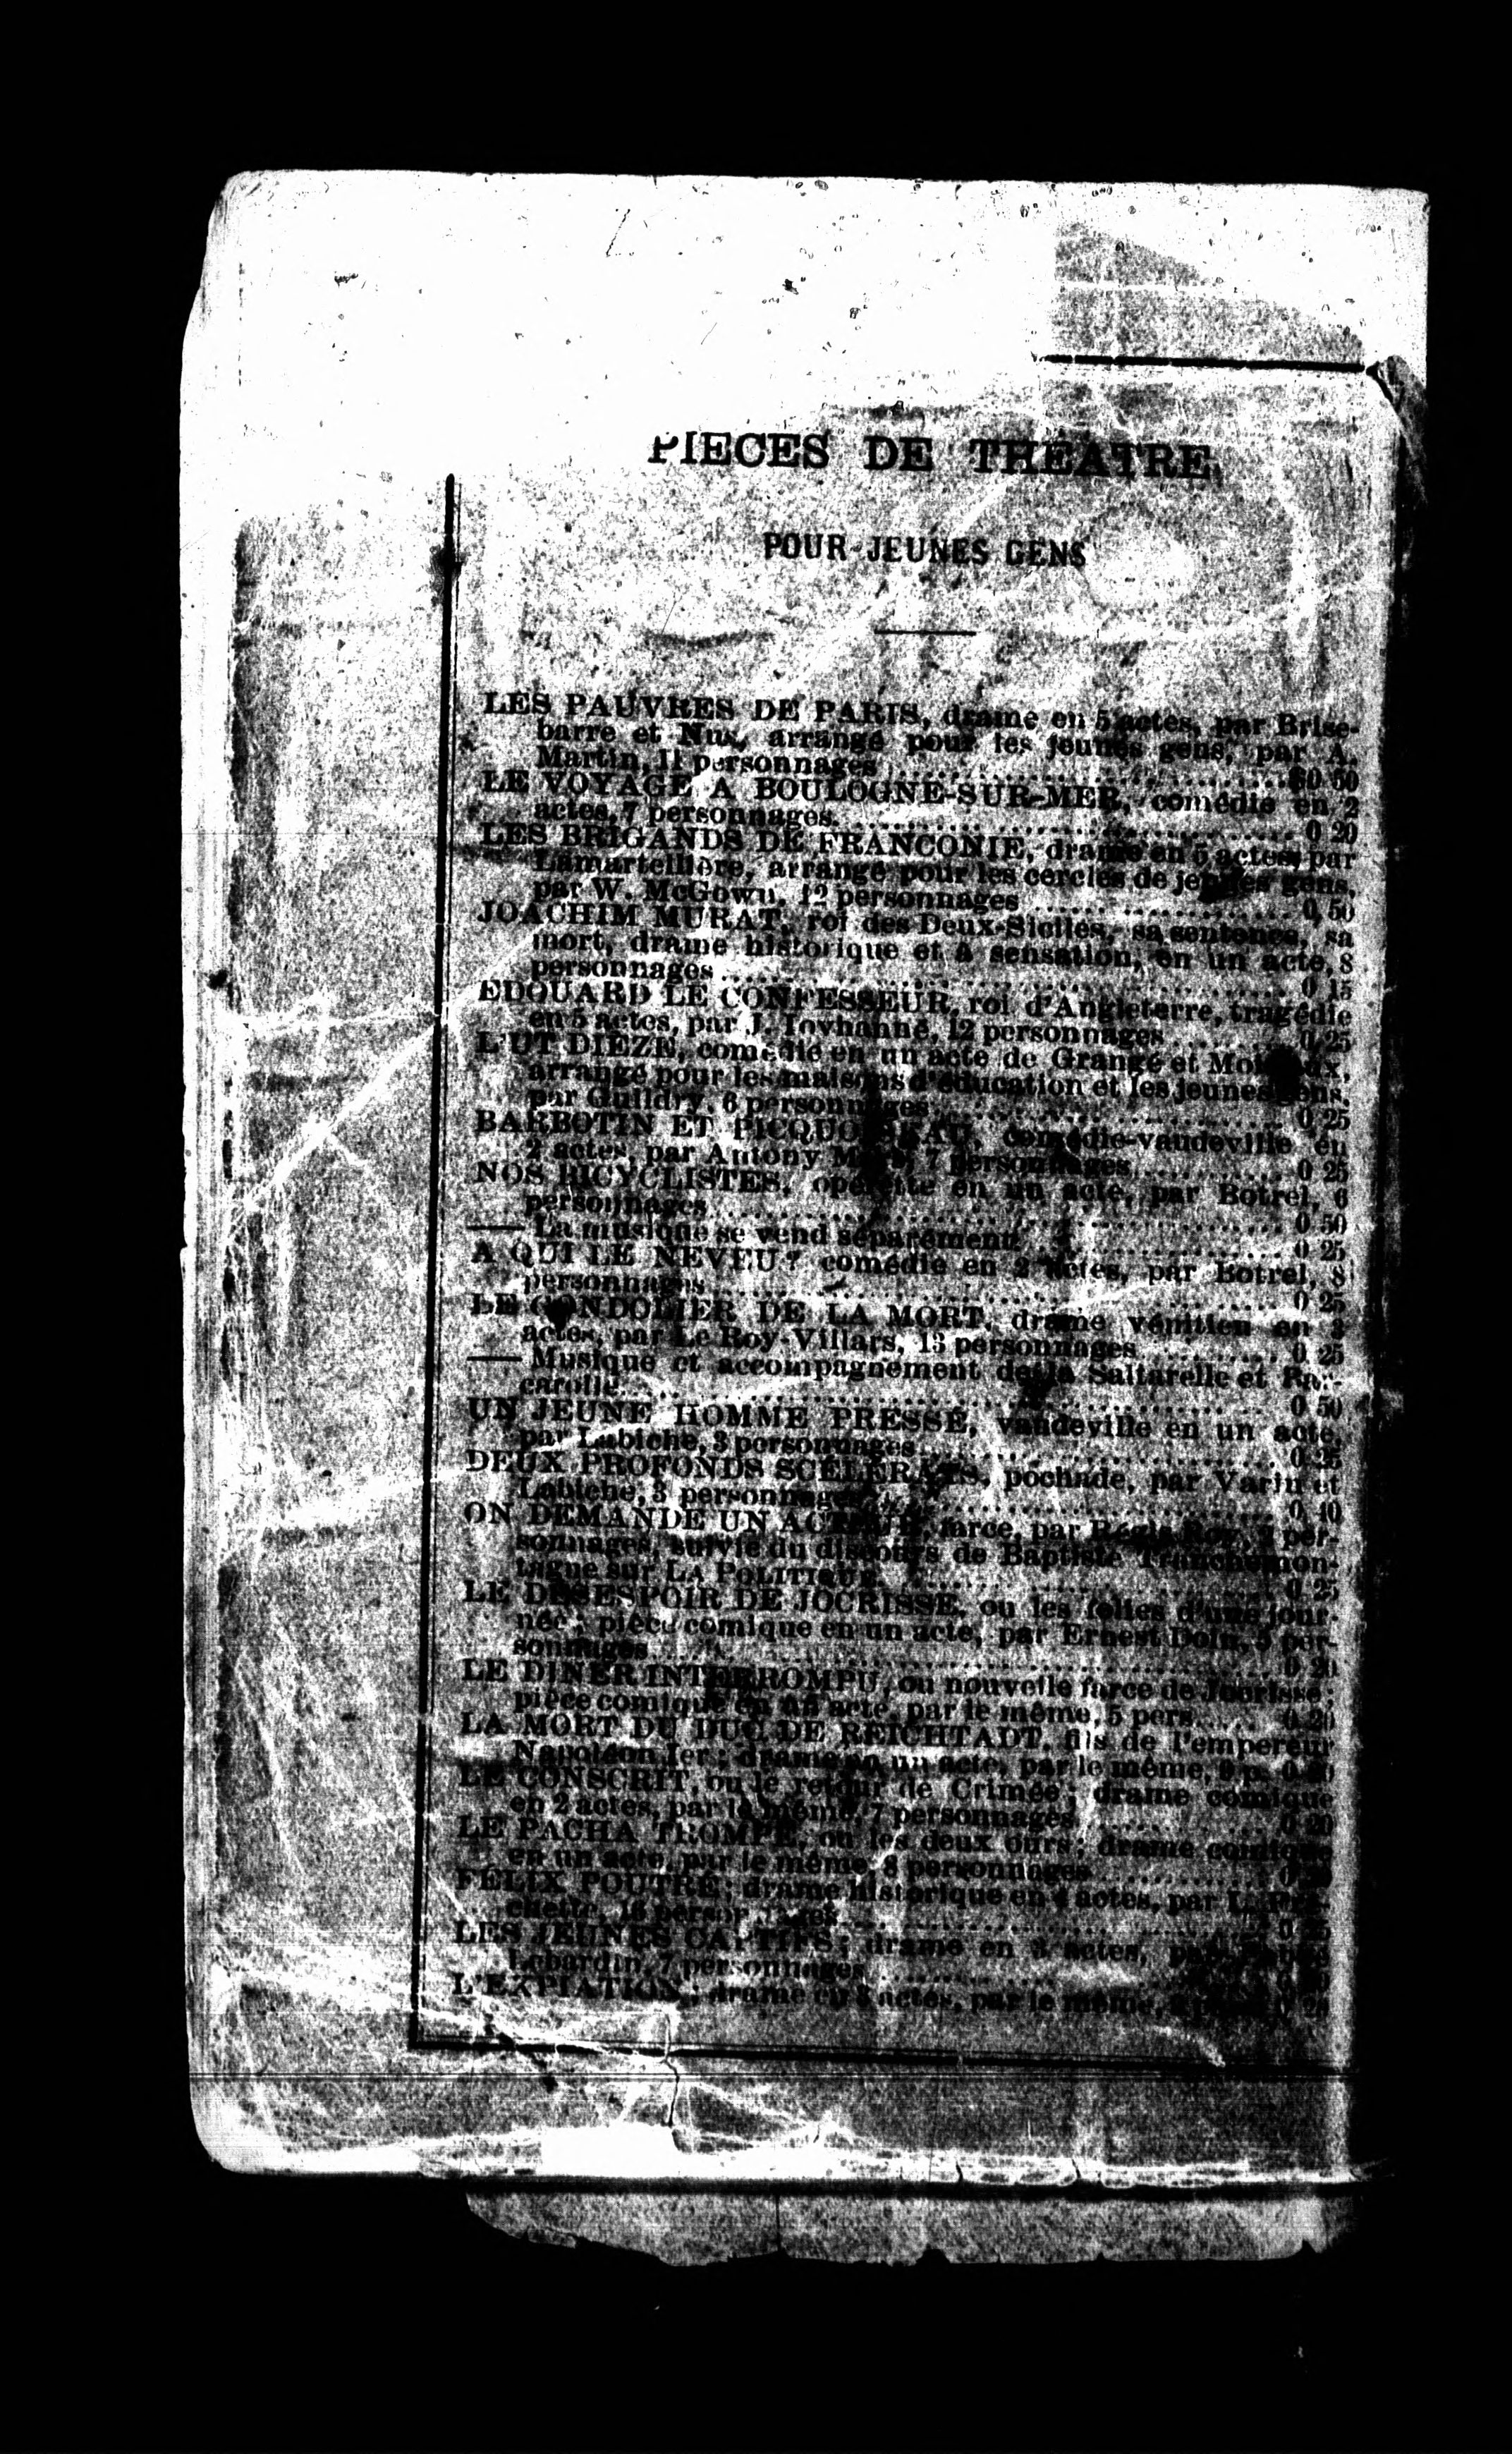 PIECES DE THEATRE
POUR JEUNES GENS
LES PAUVRES DE PARIS, drame en 5 actes, par Brise-
barre et Nus, arrangé pour les jeunes gens, par A.
Martin, 11 personnages ........ $0 50
LE VOYAGE A BOULOGNE-SUR-MER, comédie en 2
actes, 7 personnages. ........ 0 20
LES BRIGANDS DE FRANCONIE, drame en 5 actes, par
Lamartellière, arrangé pour les cercles de jeunes gens,
par W. McGown, 12 personnages ........ 0 50
JOACHIM MURAT, roi des Deux-Siciles, sa sentence, sa
mort, drame historique et à sensation, en un acte, 8
personnages ........ 0 15
EDOUARD LE CONFESSEUR, roi d'Angleterre, tragédie
en 5 actes, par J. Iovhanné, 12 personnages ........ 0 25
L'UT DIEZE, comédie en un acte de Grangé et
arrangé pour les maisons d'éducation et les jeunes gens,
par Guildry, 6 personnages ........ 0 25
BARBOTIN ET PICQUOISEAU, comédie-vaudeville en
2 actes, par Antony 7 personnages ........ 0 25
NOS BICYCLISTES, opérette en un acte, par Botrel, 6
personnages ........ 0 50
—— La musique se vend séparément ........ 0 25
A QUI LE NEVEU? comédie en 2 actes, par Botrel, 8
personnages ........ 0 25
LE GONDOLIER DE LA MORT, drame vénitien en 3
actes, par Le Roy-Villars, 13 personnages ........ 0 25
—— Musique et accompagnement de la Saltarelle et Bar-
carolle ........ 0 50
UN JEUNE HOMME PRESSÉ, vaudeville en un acte,
par Labiche, 3 personnages ........ 0 25
DEUX PROFONDS SCÉLÉRATS, pochade, par Varin et
Labiche, 3 personnages ........ 0 10
ON DEMANDE UN ACTEUR, farce, par Régis Roy, 2 per-
sonnages, suivie du discours de Baptiste Tranchemon-
tagne sur LA POLITIQUE ........ 0 25
LE DESESPOIR DE JOCRISSE, ou les folies d'une jour-
née ; pièce comique en un acte, par Ernest Doin, 5 per-
sonnages ........ 0 20
LE DINER INTERROMPU, ou nouvelle farce de Jocrisse ;
pièce comique en un acte, par le même, 5 pers. ........ 0 20
LA MORT DU DUC DE REICHTADT, fils de l'empereur
Napoléon Ier ; drame en un acte, par le même, 9 p. 0 20
LE CONSCRIT, ou le retour de Crimée ; drame comique
en 2 actes, par le même, 7 personnages ........ 0 20
LE PACHA TROMPÉ, ou les deux ours ; drame comique
en un acte, par le même, 8 personnages ........
FÉLIX POUTRÉ ; drame historique en 4 actes, par L. Fré-
chette, 16 personnages ........ 0 25
LES JEUNES CAPTIFS ; drame en 3 actes, par
Lebardin, 7 personnages ........
L'EXPIATION ; drame en 3 actes, par le même,